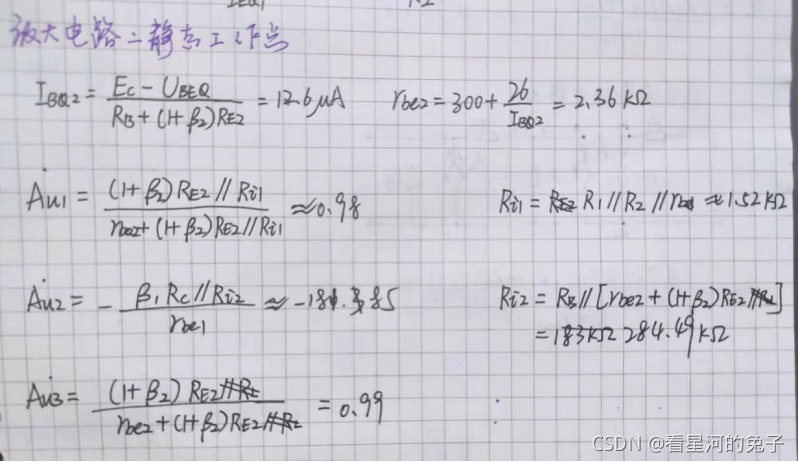 放大电路二静态工作点
I_BQ2 = (E_C - U_BEQ) / (R_B + (1+β_2)R_E2) = 12.6μA r_be2 = 300 + 26/I_BQ2 = 2.36 kΩ
Ȧu1 = (1+β_2)R_E2 // R_i1 / (r_be2 + (1+β_2)R_E2 // R_i1) ≈ 0.98 R_i1 = R_1 // R_2 // r_be1 ≈ 1.52 kΩ
Ȧu2 = - β_1 R_C // R_i2 / r_be1 ≈ -181.85 R_i2 = R_B // [r_be2 + (1+β_2)R_E2]
= 183kΩ 284.49kΩ
Ȧu3 = (1+β_2) R_E2 / (r_be2 + (1+β_2)R_E2) = 0.99
CSDN @看星河的兔子